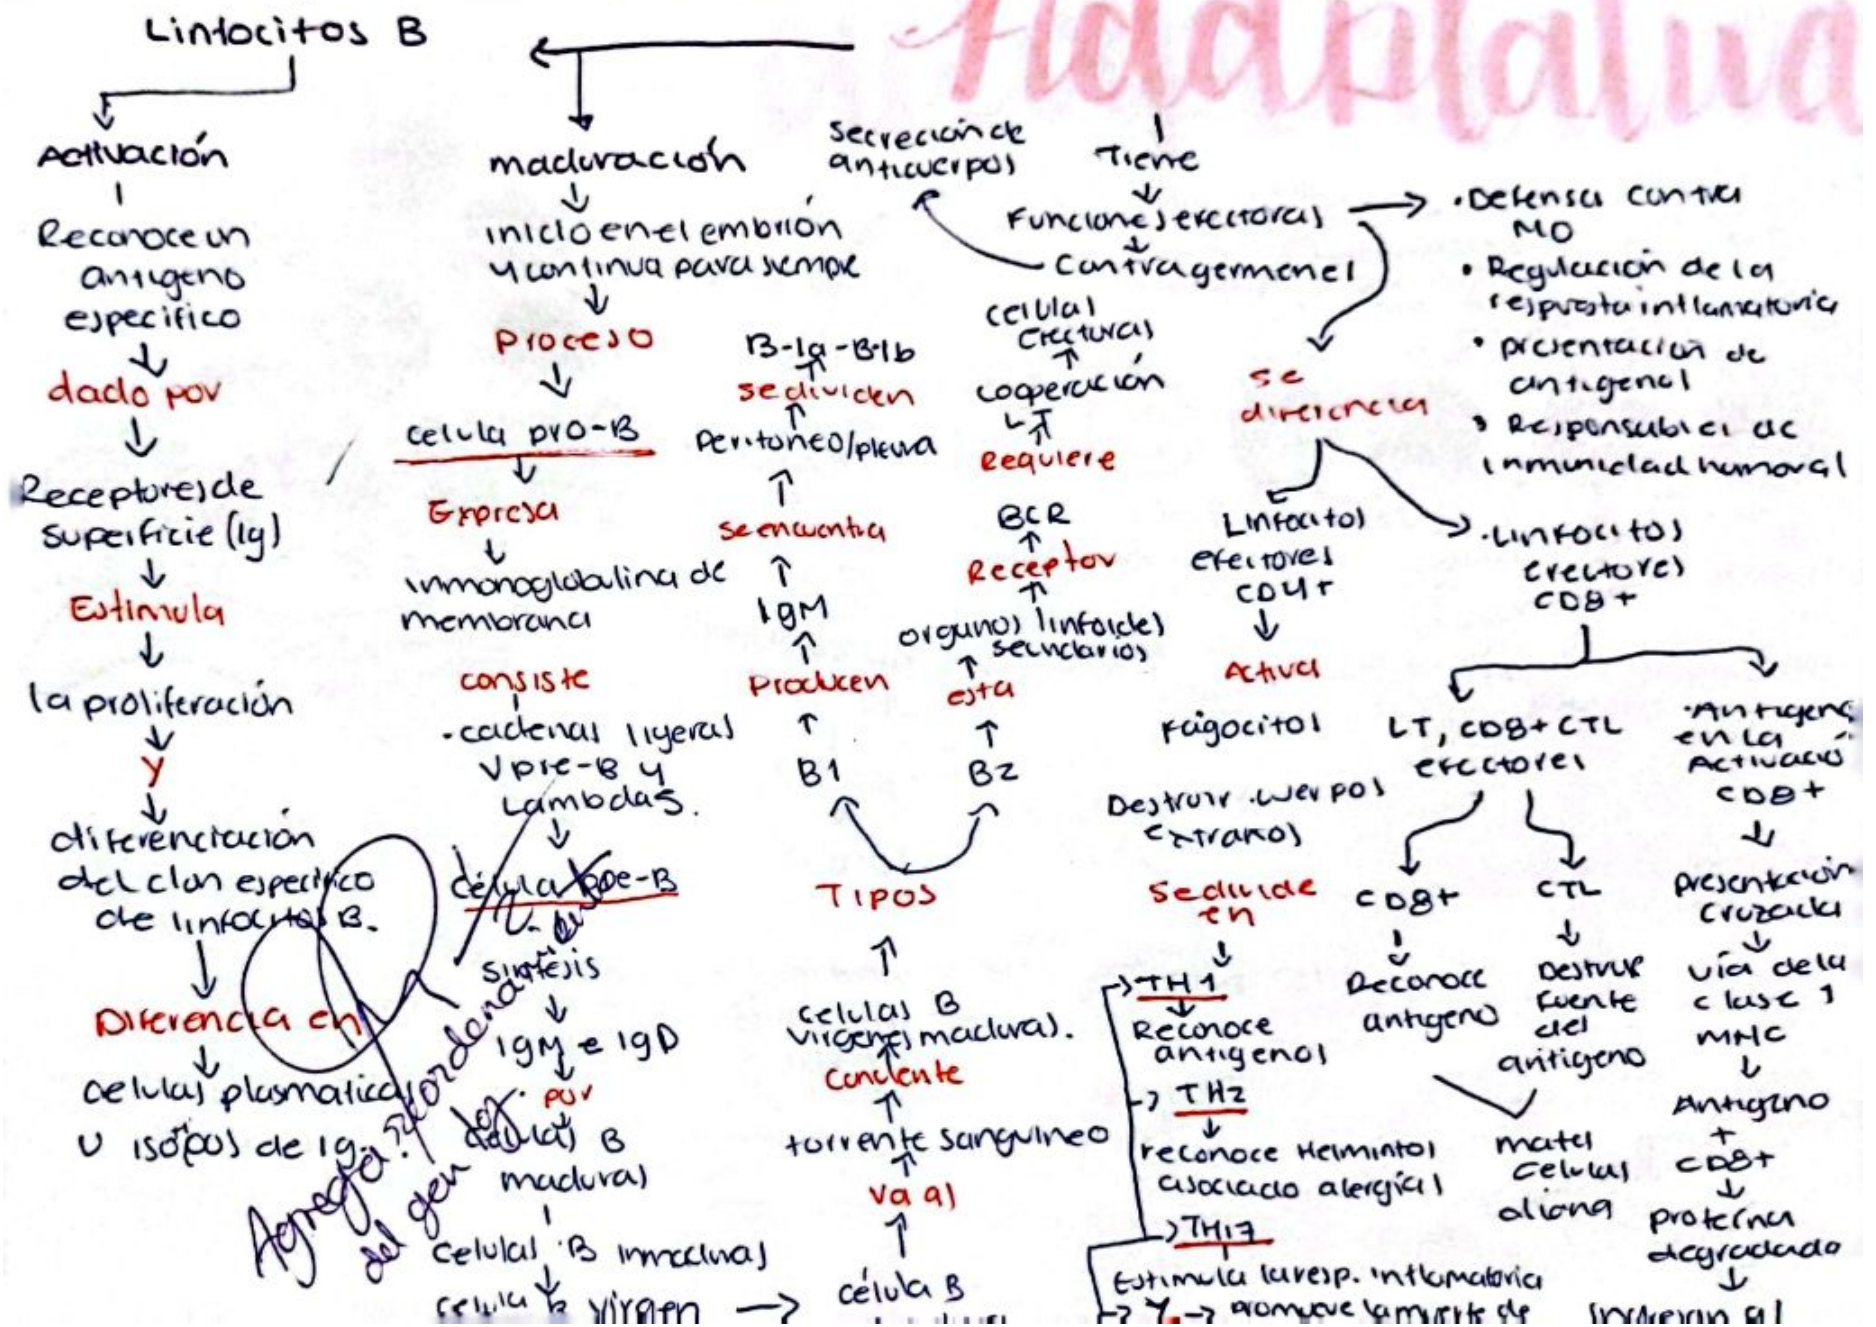 Adaptativa
Linfocitos B
Activación
Reconoce un
antigeno
especifico
dado por
Receptores de
superficie (Ig)
Estimula
la proliferación
y
diferenciación
del clon especifico
de linfocitos B.
Diferencia en
celulas plasmaticas
U isotipos de Ig.
Agregar:
reordenamiento
del gen
maduración
inicio en el embrión
y continua para siempre
Proceso
celula pro-B
Expresa
inmonoglobulina de
membrana
consiste
-cadenas ligeras
Vpre-B y
Lambdas.
célula pre-B
sintesis
IgM e IgD
por
células B
maduras
celulas B inmaduras
celula B virgen →
célula B
va al
torrente sanguineo
Conciente
celulas B
virgenes maduras.
TIPOS
B1
Producen
IgM
se encuentra
Peritoneo/pleura
se dividen
B-1a-B-1b
B2
esta
organos linfoides
secundarios
Receptor
BCR
Requiere
cooperación
celulas
efectoras
secreción de
anticuerpos
Tiene
Funciones efectoras
Contra germenes
•Defensa contra
MO
• Regulación de la
respuesta inflamatoria
• presentación de
antigenos
• Responsables de
inmunidad humoral
se
diferencia
Linfocitos
efectores
CD4+
Activa
Fagocitos
Destruir cuerpos
extraños
Se divide
en
TH1
Reconoce
antigenos
TH2
reconoce Helmintos
asociado alergias
TH17
Estimula la resp. inflamatoria
promueve la muerte de
•Linfocitos
efectores
CD8+
LT, CD8+ CTL
efectores
CD8+
Reconoce
antigeno
CTL
Destruye
Fuente
del
antigeno
mata
celulas
aliana
•Antigeno
en la
Activació
CD8+
presentación
cruzada
via de la
clase 1
MHC
Antigeno
+
CD8+
proteína
degradado
ingresan al